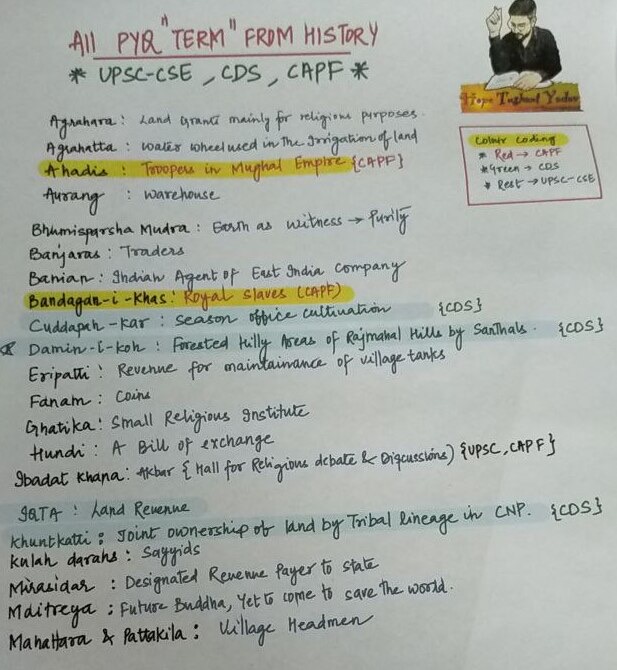 All PYQ "TERM" FROM HISTORY
* UPSC-CSE, CDS, CAPF *
Hope Tushant Yadav
Colour Coding
* Red → CAPF
* Green → CDS
* Rest → UPSC-CSE
Agrahara : Land Grants mainly for religious purposes.
Agrahatta : water wheel used in the Irrigation of land
Ahadis : Troopers in Mughal Empire {CAPF}
Aurang : warehouse
Bhumisparsha Mudra : Earth as witness → Purity
Banjaras : Traders
Banian : Indian Agent of East India Company
Bandagan-i-Khas : Royal slaves (CAPF)
Cuddapah-kar : season office cultivation {CDS}
* Damin-I-koh : Forested Hilly Areas of Rajmahal Hills by Santhals. {CDS}
Eripatti : Revenue for maintainance of village tanks
Fanam : Coins
Ghatika : Small Religious Institute
Hundi : A Bill of exchange
Ibadat Khana : Akbar { Hall for Religious debate & Discussions) {UPSC, CAPF}
IQTA : Land Revenue
Khuntkatti : Joint ownership of land by Tribal lineage in CNP. {CDS}
Kulah darahs : Sayyids
Mirasidar : Designated Revenue Payer to state
Maitreya : Future Buddha, Yet to come to save the world.
Mahattara & Pattakila : Village Headmen